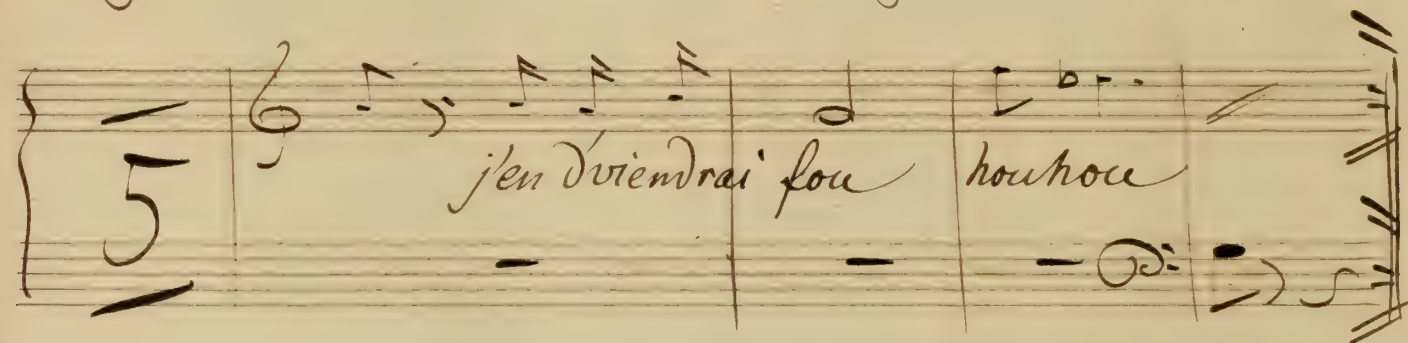 5
j'en d'viendrai fou houhou